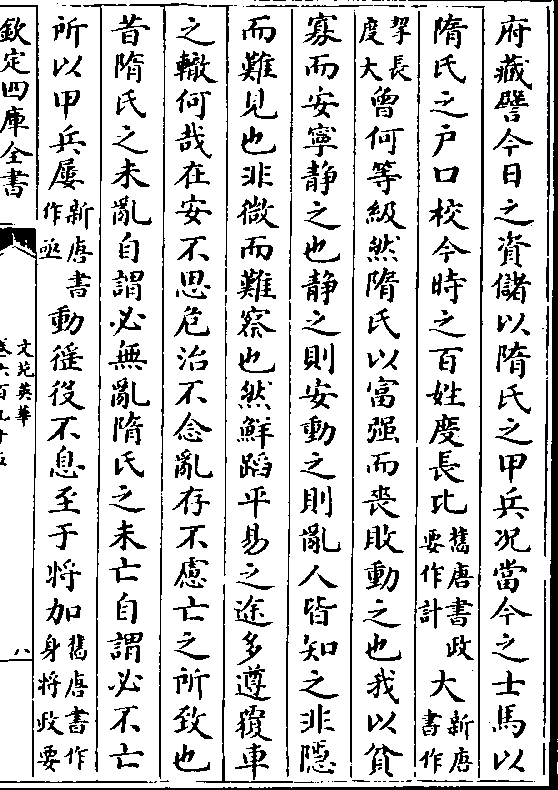 府藏譬今日之資儲以隋氏之甲兵况當今之士馬以
隋氏之户口校今時之百姓度長比舊唐書政要作計大新唐書作
挈長度大曾何等級然隋氏以富强而喪敗動之也我以貧
寡而安寧静之也静之則安動之則亂人皆知之非隱
而難見也非微而難察也然鮮蹈平易之途多遵覆車
之轍何哉在安不思危治不念亂存不慮亡之所致也
昔隋氏之未亂自謂必無亂隋氏之未亡自謂必不亡
所以甲兵屢新唐書作亟動徭役不息至于將加舊唐書作身將政要
欽定四庫全書
文苑英華
卷六百九十五
八